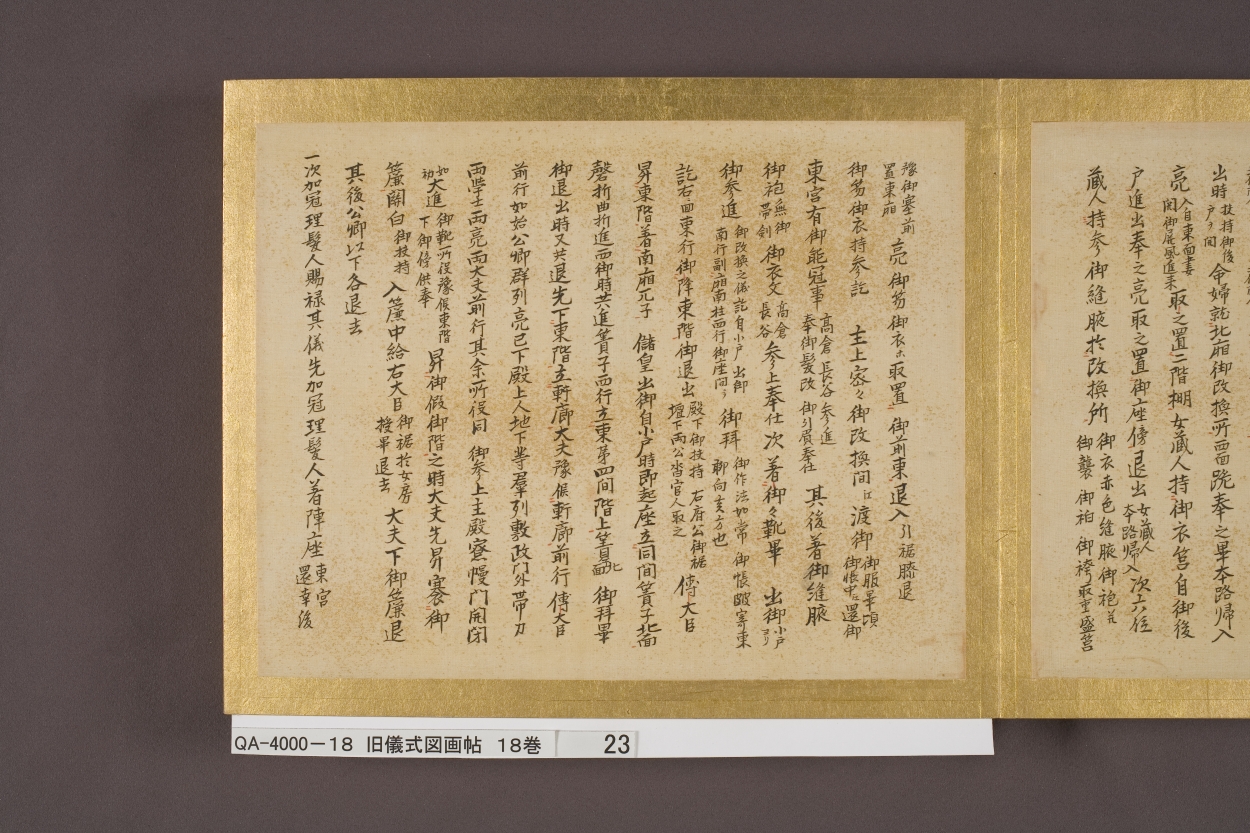 出時 扶持御後 戸ヲ開 命婦就北廂御改換所西面跪奉之畢本路帰入
亮 入自東面妻 開御屏風進来 取之置二階棚女蔵人持御衣筥自御後
戸進出奉之亮取之置御座傍退出 女蔵人 本路帰入 次六位
蔵人持参御縫腋於改換所 御衣赤色縫腋御袍 御襲 御袙 御袴取重盛筥
豫御塞前 置東廂 亮 御笏御衣ホ取置 御前東退入 引裾膝退
御笏御衣持参訖 主上密々御改換間江渡御 御服畢頃 御帳中江還御
東宮有御能冠事 高倉長谷参進 奉御髪改 御引直奉仕 其後着御縫腋
御袍 無御 帯剣 御衣文 高倉 長谷 参上奉仕 次着御々靴畢 出御 小戸 ヨリ
御参進 御改換之儀訖自小戸出御 南行副廂南柱西行御座間ヲ 御拝 御作法如常 御帳 寄東 聊向 方也
訖右 東行御降東階御退出 殿下御扶持 右府公御裾 壇下両公沓官人取之 傅大臣
昇東階着南廂兀子 儲皇出御自小戸時即起座立同間簀子北面
磬折曲折進西御時共進簀子西行立東第四間階上簀 北面 御拝畢
御退出時又共退先下東階立軒廊大夫豫候軒廊前行 傅大臣
前行如始公卿群列亮已下殿上人地下等羣列敷政門外帯刀
両学士両亮両大夫前行其余所役同 御参上主殿寮幔門開閉
如初 大進 御靴所役豫候東階 下御傍供奉 昇御假御階之時大夫先昇褰御
簾関白 御扶持 入簾中給右大臣 御裾於女房 授畢退去 大夫下御簾退
其後公卿以下各退去
一次加冠理髪人賜禄其儀先加冠理髪人着陣座 東宮 還幸後
QA-4000-18 旧儀式図画帖 18巻 23